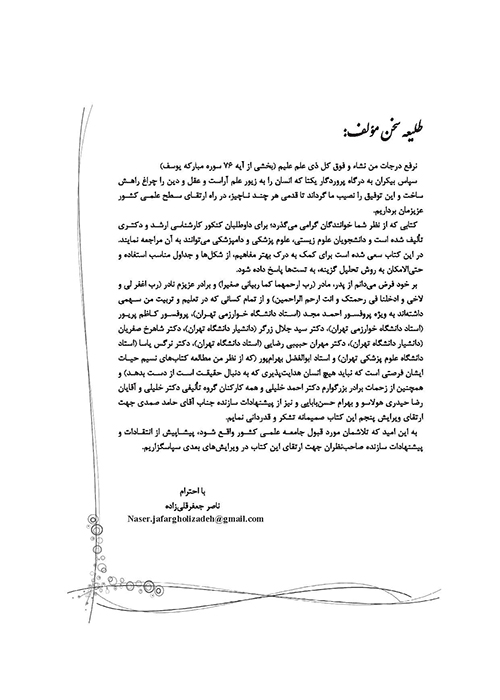 طلیعه سخن مؤلف:
نرفع درجات من نشاء و فوق کل ذی علم علیم (بخشی از آیه ۷۶ سوره مبارکه یوسف)
سپاس بیکران به درگاه پروردگار یکتا که انسان را به زیور علم آراست و عقل و دین را چراغ راهش
ساخت و این توفیق را نصیب ما گرداند تا قدمی هر چند ناچیز، در راه ارتقای سطح علمی کشور
عزیزمان برداریم.
کتابی که از نظر شما خوانندگان گرامی می‌گذرد؛ برای داوطلبان کنکور کارشناسی ارشد و دکتری
تألیف شده است و دانشجویان علوم زیستی، علوم پزشکی و دامپزشکی می‌توانند به آن مراجعه نمایند.
در این کتاب سعی شده است برای کمک به درک بهتر مفاهیم، از شکل‌ها و جداول مناسب استفاده و
حتی‌الامکان به روش تحلیل گزینه، به تست‌ها پاسخ داده شود.
بر خود فرض می‌دانم از پدر، مادر (رب ارحمهما کما ربیانی صغیرا) و برادر عزیزم نادر (رب اغفر لی و
لاخی و ادخلنا فی رحمتک و انت ارحم الراحمین) و از تمام کسانی که در تعلیم و تربیت من سهمی
داشته‌اند به ویژه پروفسور احمد مجد (استاد دانشگاه خوارزمی تهران)، پروفسور کاظم پریور
(استاد دانشگاه خوارزمی تهران)، دکتر سید جلال زرگر (دانشیار دانشگاه تهران)، دکتر شاهرخ صفریان
(دانشیار دانشگاه تهران)، دکتر مهران حبیبی رضایی (استاد دانشگاه تهران)، دکتر نرگس یاسا (استاد
دانشگاه علوم پزشکی تهران) و استاد ابوالفضل بهرام‌پور (که از نظر من مطالعه کتاب‌های نسیم حیات
ایشان فرصتی است که نباید هیچ انسان هدایت‌پذیری که به دنبال حقیقت است از دست بدهد) و
همچنین از زحمات برادر بزرگوارم دکتر احمد خلیلی و همه کارکنان گروه تألیفی دکتر خلیلی و آقایان
رضا حیدری هولاسو و بهرام حسن‌بابایی و نیز از پیشنهادات سازنده جناب آقای حامد صمدی جهت
ارتقای ویرایش پنجم این کتاب صمیمانه تشکر و قدردانی نمایم.
به این امید که تلاشمان مورد قبول جامعه علمی کشور واقع شود، پیشاپیش از انتقادات و
پیشنهادات سازنده صاحب‌نظران جهت ارتقای این کتاب در ویرایش‌های بعدی سپاسگزاریم.
با احترام
ناصر جعفرقلی‌زاده
Naser.jafargholizadeh@gmail.com